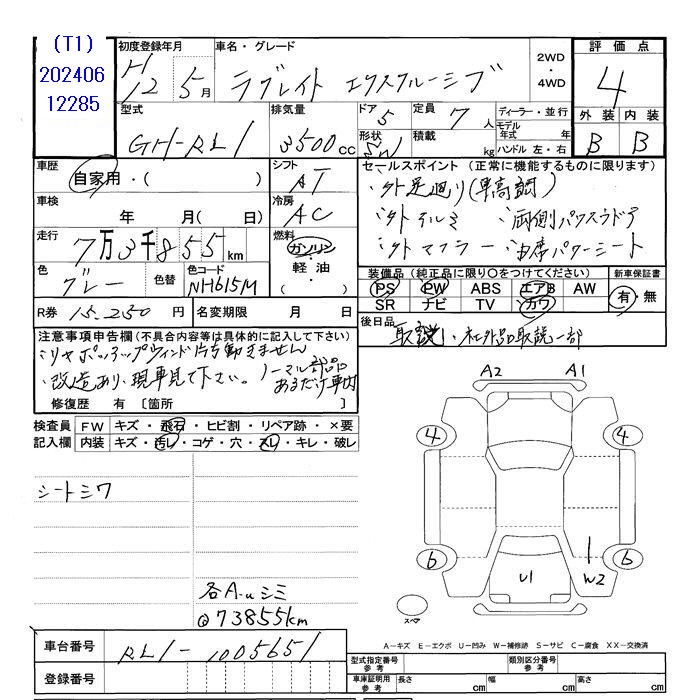 (T1)
202406
12285
初度登録年月
H12 5月
車名・グレード
ラグレイト エクスクルーシブ
2WD
・
4WD
評価点
4
型式
GH-RL1
排気量
3500cc
ドア 5
形状 SW
定員 7人
積載 kg
ディーラー・並行
モデル年式 年
ハンドル 左・右
外装 内装
B B
車歴
自家用・( )
シフト
AT
セールスポイント (正常に機能するものに限ります)
・外足廻り(車高調)
・外アルミ ・両側パワスラドア
・外マフラー ・由席パワーシート
車検
年 月( 日)
冷房
AC
走行
7万3千855km
燃料
ガソリン
・
軽油
色
グレー
色替
色コード
NH615M
装備品 (純正品に限り○をつけてください)
PS PW ABS エアB AW
SR ナビ TV カワ
新車保証書
有・無
R券 15,250円
名変期限 月 日
後日品
取説、社外品取説一部
注意事項申告欄 (不具合内容等は具体的に記入して下さい)
・リヤポップアップウィンド片方動きません
・改造あり、現車見て下さい。ノーマル部品
あるだけ車内
修復歴 有 [箇所 ]
検査員
記入欄
FW キズ・飛石・ヒビ割・リペア跡・×要
内装 キズ・汚レ・コゲ・穴・スレ・キレ・破レ
シートシワ
各A・uシミ
@73855km
A2 A1
4 4
6 6
U1 W2
スペア
A-キズ E-エクボ U-凹み W-補修跡 S-サビ C-腐食 XX-交換済
車台番号
RL1-1005651
登録番号
型式指定番号
参考
類別区分番号
参考
車庫証明用
参考
長さ cm
幅 cm
高さ cm